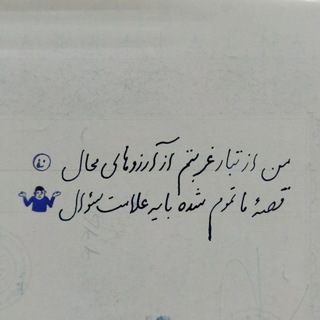 من از تبار غربتم از آرزوهای محال
قصهٔ ما تموم شده با یه علامت سئوال